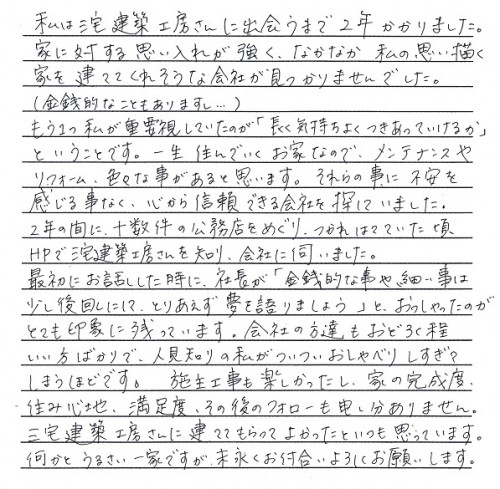 私は三宅建築工房さんに出会うまで2年かかりました。
家に対する思い入れが強く、なかなか 私の思い描く
家を建ててくれそうな会社が見つかりませんでした。
(金銭的なこともありますし…)
もう1つ私が重要視していたのが「長く気持ちよくつきあっていけるか」
ということです。一生住んでいくお家なので、メンテナンスや
リフォーム、色々な事があると思います。それらの事に不安を
感じる事なく、心から信頼できる会社を探していました。
2年の間に、十数件の公務店をめぐり、つかれはてていた頃
HPで三宅建築工房さんを知り、会社に伺いました。
最初にお話しした時に、社長が「金銭的な事や細い事は
少し後回しにして、とりあえず夢を語りましょう」と、おっしゃったのが
とても印象に残っています。会社の方達もおどろく程
いい方ばかりで、人見知りの私がついついおしゃべりしすぎて
しまうほどです。 施主工事も楽しかったし、家の完成度、
住み心地、満足度、その後のフォローも申し分ありません。
三宅建築工房さんに建ててもらってよかったといつも思っています。
何かとうるさい一家ですが、末永くお付合いよろしくお願いします。